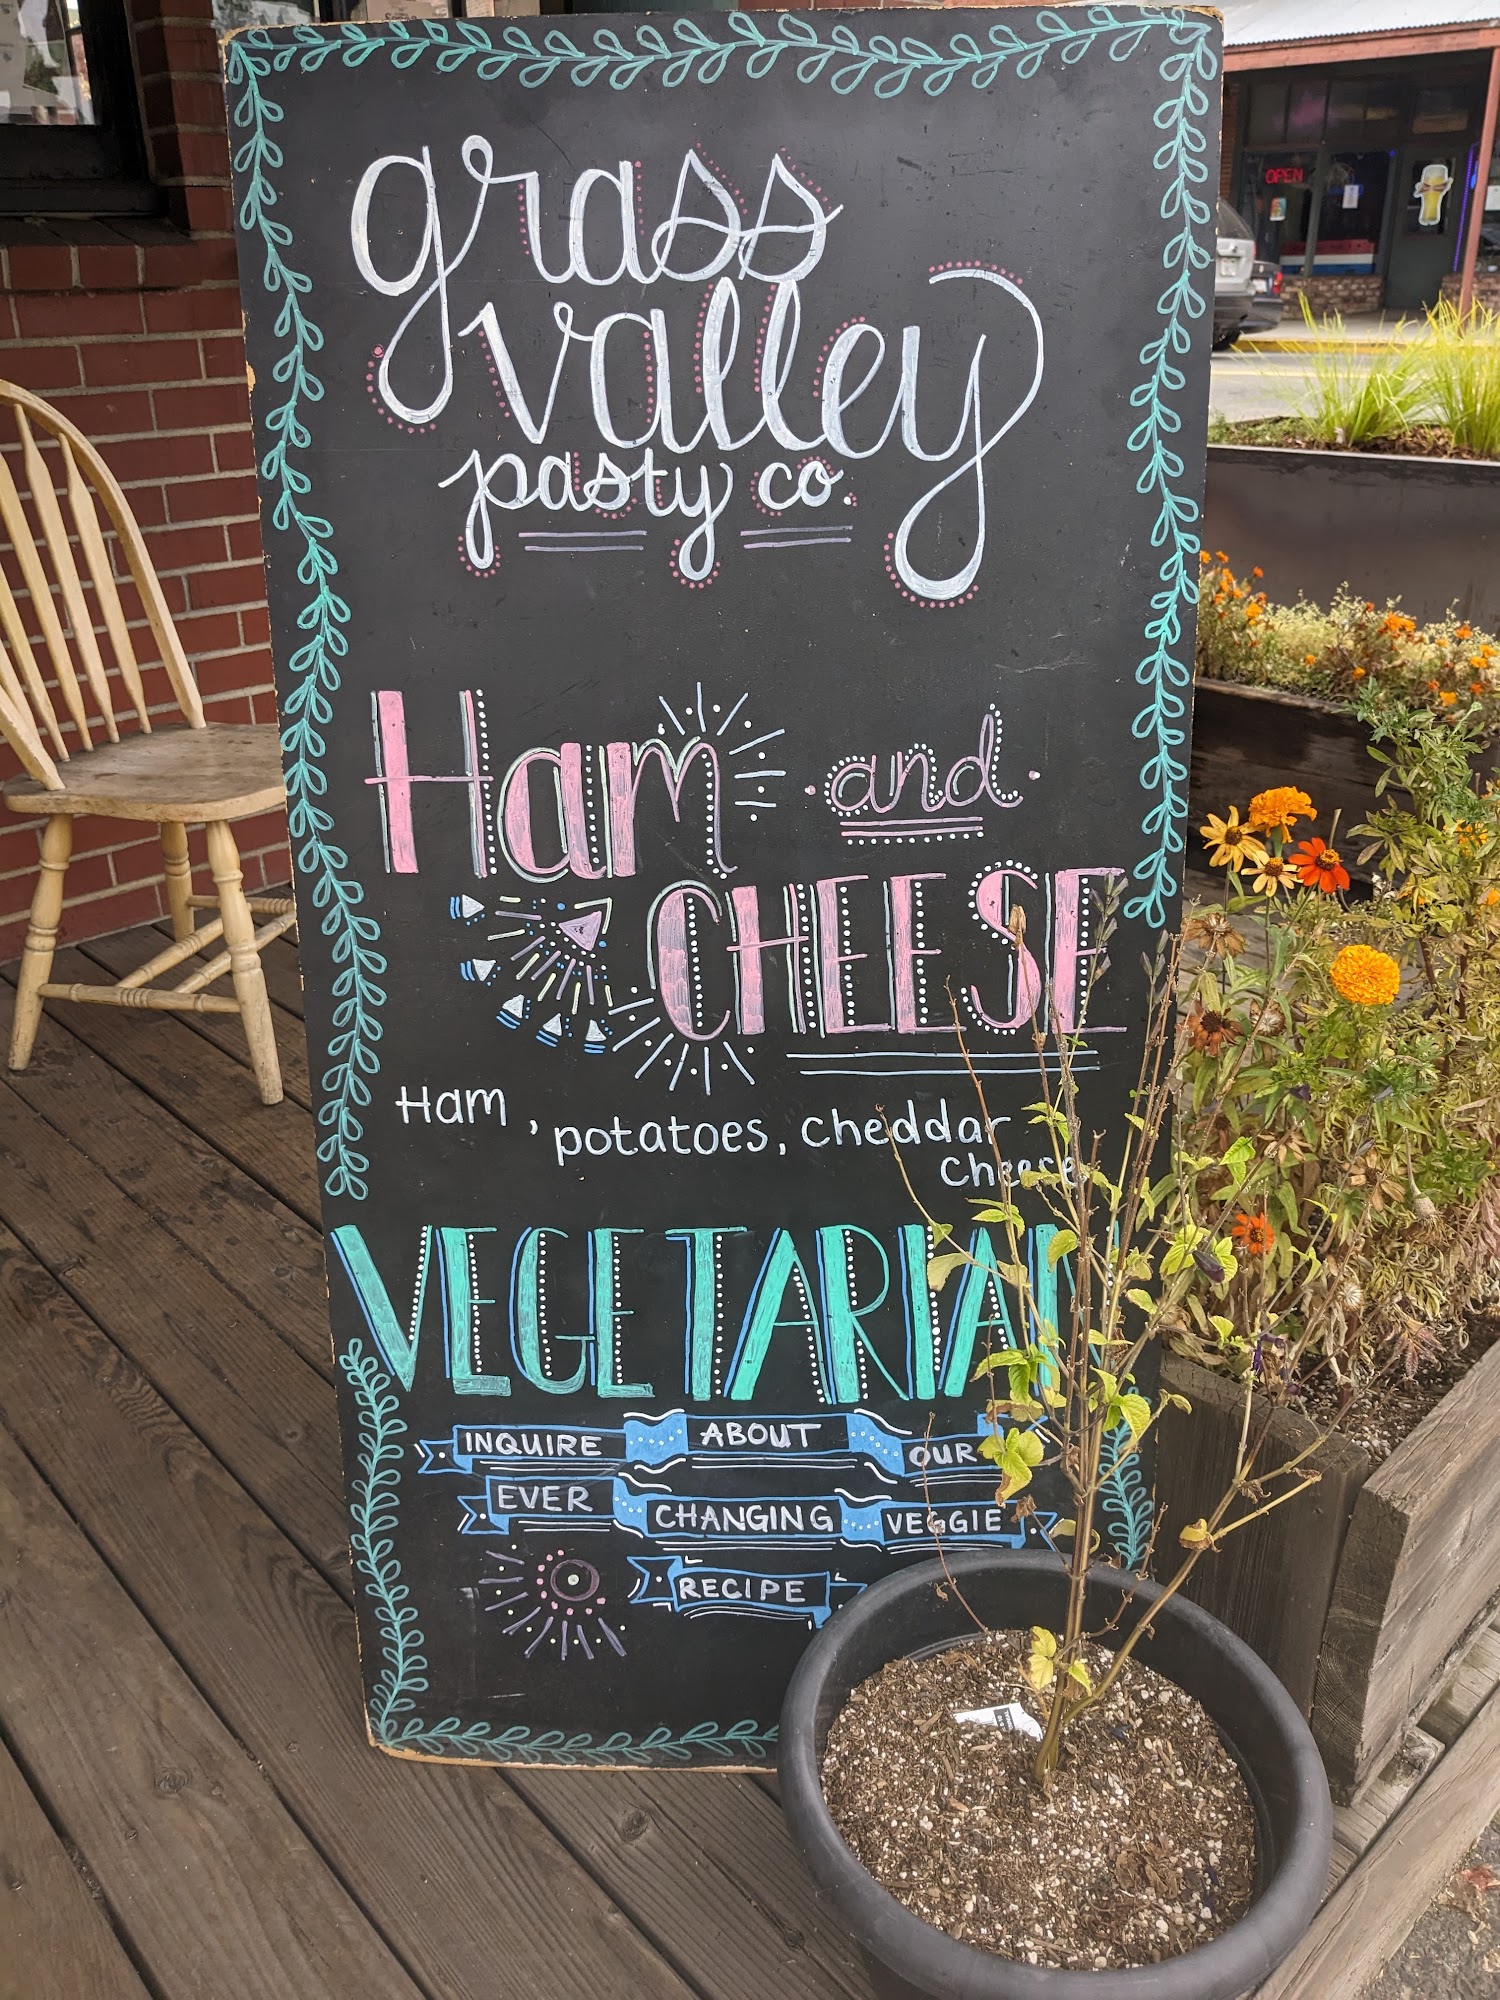 grass
valley
pasty co.
Ham and
CHEESE
Ham, potatoes, cheddar
cheese
VEGETARIAN
INQUIRE ABOUT OUR
EVER CHANGING VEGGIE
RECIPE
OPEN